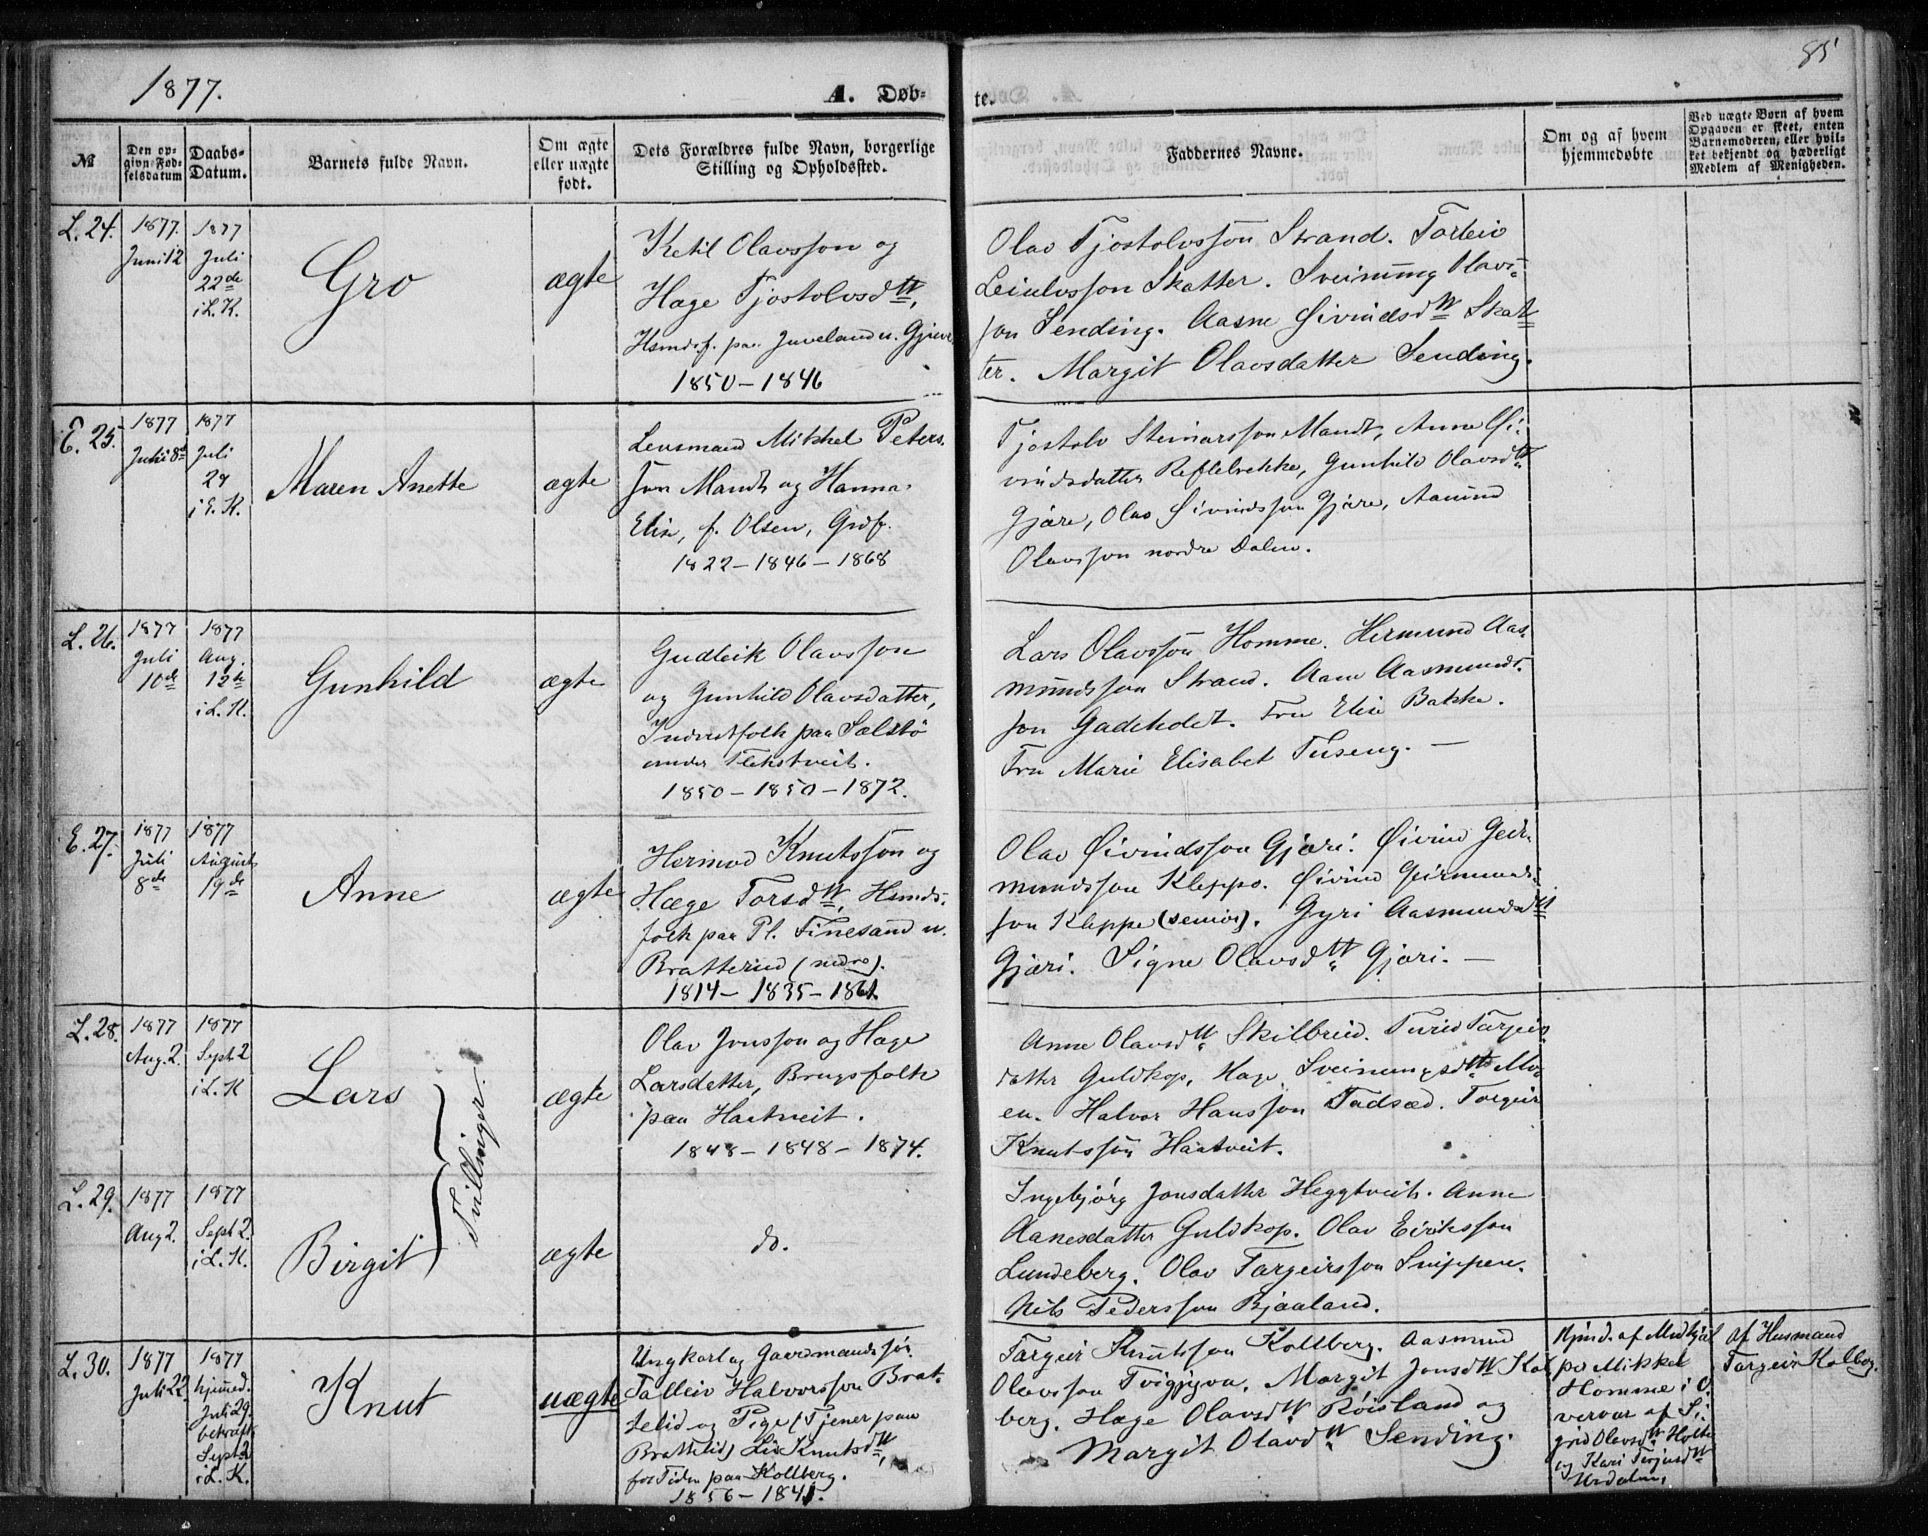 1877.
A. Døb-
te.
85
№
Den op-
givne Fød-
selsdatum
Daabs-
Datum.
Barnets fulde Navn.
Om ægte
eller uægte
født.
Dets Forældres fulde Navn, borgerlige
Stilling og Opholdssted.
Faddernes Navne.
Om og af hvem
hjemmedøbte
Ved uægte Børn af hvem
Opgaven er skeet, enten
Barnemoderen, eller hvil-
ket bekjendt og hæderligt
Medlem af Menigheden.
L. 24.
1877.
Juni 12
1877
Juli
22de
i L. K.
Gro
ægte
Ketil Olavsson og
Hæge Tjostolvsdtt,
Hsmdsf. paa Juveland u.
1850 – 1846
Olav Tjostolvsson Strand. Torleiv
Leiulvsson Skatter. Sveinung Olavs-
son Sending. Aasne Øivindsdtt Skat-
ter. Margit Olavsdatter Sending.
E. 25.
1877
Juni 8de
1877
Juli
29
i E. K.
Maren Anette
ægte
Lensmand Mikkel Peters-
son Mandt og Hanna
Elise, f. Olsen, Grdf.
1822 – 1846 – 1868
Tjostolv Steinarsson Mandt, Anne Øi-
vindsdatter Gunhild Olavsdtt
Gjære, Olav Øivindsson Gjære, Aanund
Olavsson nordre Dalen.
L. 26.
1877
Juli
10de
1877
Aug.
12te
i L. K.
Gunhild
ægte
Gudleik Olavsson
og Gunhild Olavsdatter,
Indrstfolk paa
under Flekstveit.
1850 – 1850 – 1872.
Lars Olavsson Homme. Hermund Aas-
mundsson Strand. Aane Aasmunds-
son Fru Elise Bakke.
Fru Marie Elisabet Tuseng. –
E. 27.
1877
Juli
8de
1877
August
19de
Anne
ægte
Hermod Knutsson og
Hæge Torsdtt, Hsmds-
folk paa Pl. Finesand u.
Bratterud (nedre).
1814 – 1835 – 1861.
Olav Øivindsson Gjæri. Øivind Geir-
mundsson Kleppo. Øivind Geirmunds-
son Kleppe (senior). Gyri Aasmundsdtt
Gjæri. Signe Olavsdtt Gjæri. –
L. 28.
1877
Aug. 2.
1877
Sept. 2
i L. K
Lars
Tvillinger.
ægte
Olav Jonsson og Hæge
Larsdatter, Brugsfolk
paa Haatveit.
1848 – 1848 – 1874.
Anne Olavsdtt Skilbreid. Turid Targeirs-
datter Guldkop. Hæge Sveinungsdtr Mo-
en. Halvor Hansson Torgeir
Knutsson Haatveit.
L. 29.
1877
Aug 2.
1877
Sept 2.
i L. K.
Birgit
ægte
do.
Ingebjørg Jonsdatter Heggtveit. Anne
Aanesdatter Guldkop. Olav Eiriksson
Lundeberg. Olav Targeirsson Snippen.
Nils Pedersson Bjaaland.
L. 30.
1877
Juli 22
1877
hjemmed.
Juli 29.
bekræft.
Sept. 2
i L. K.
Knut
uægte
Ungkarl og Gaardmandssøn
Talleiv Halvorsson Brat-
telid og Pige (Tjener paa
Brattelid) Liv Knutsdtt,
for Tiden paa Kolberg.
1856 – 1841.
Targeir Knutsson Kolberg. Aasmund
Olavsson Margit Jonsdtt Kol-
berg. Hæge Olavsdtt Røisland og
Margit Olavsdtt Sending.
Hjmd. af Medhjæl-
per Mikkel
Homme i O-
vervær af Si-
grid Olavsdtt Holte
og Kari Terjusdtt
Urdalen.
Af Husmand
Targeir Kolberg.